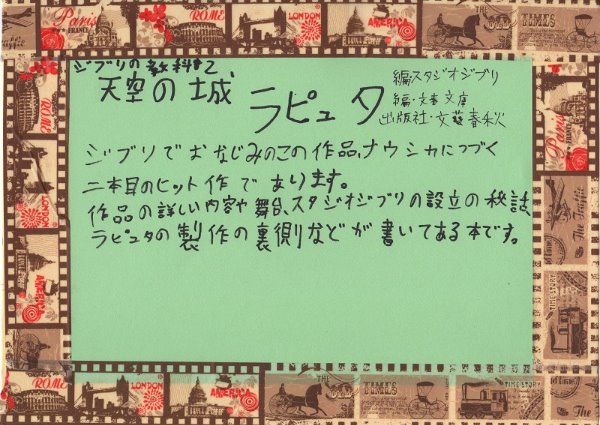 ジブリの教科書2
天空の城
ラピュタ
編スタジオジブリ
編・文春文庫
出版社・文藝春秋
ジブリでおなじみのこの作品、ナウシカにつづく
二本目のヒット作であります。
作品の詳しい内容や舞台、スタジオジブリの設立の秘話、
ラピュタの製作の裏側などが書いてある本です。
Paris
FRANCE
ROME
LONDON
AMERICA
The Traffic
TIMES
TIME STORY